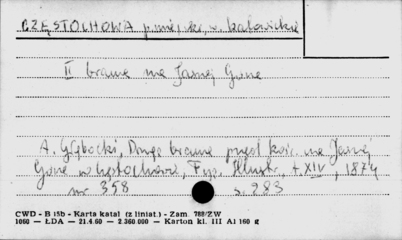 CZĘSTOCHOWA p. miejski, w. katowickie
II brama na Jasnej Górze
A. Głębocki, Druga brama przed kość. na Jasnej
Górze w Częstochowie, Tyg. Illustr., t. XIV, 1874
nr 358 s. 283
CWD - B 15b - Karta katal (z liniat.) - Zam 788/ZW
1060 — ŁDA — 21.4.60 — 2 360.000 — Karton kl. III A1 160 g